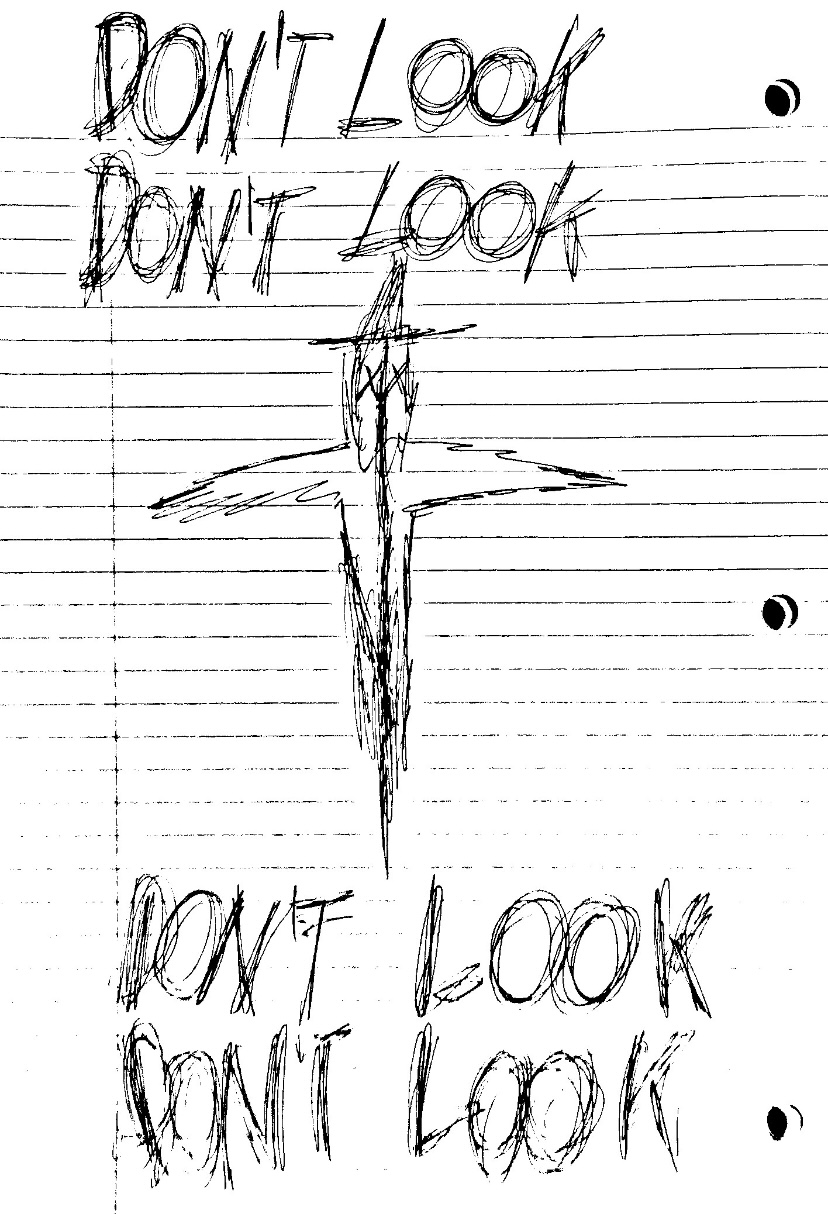 DON'T LOOK
DON'T LOOK
DON'T LOOK
DON'T LOOK